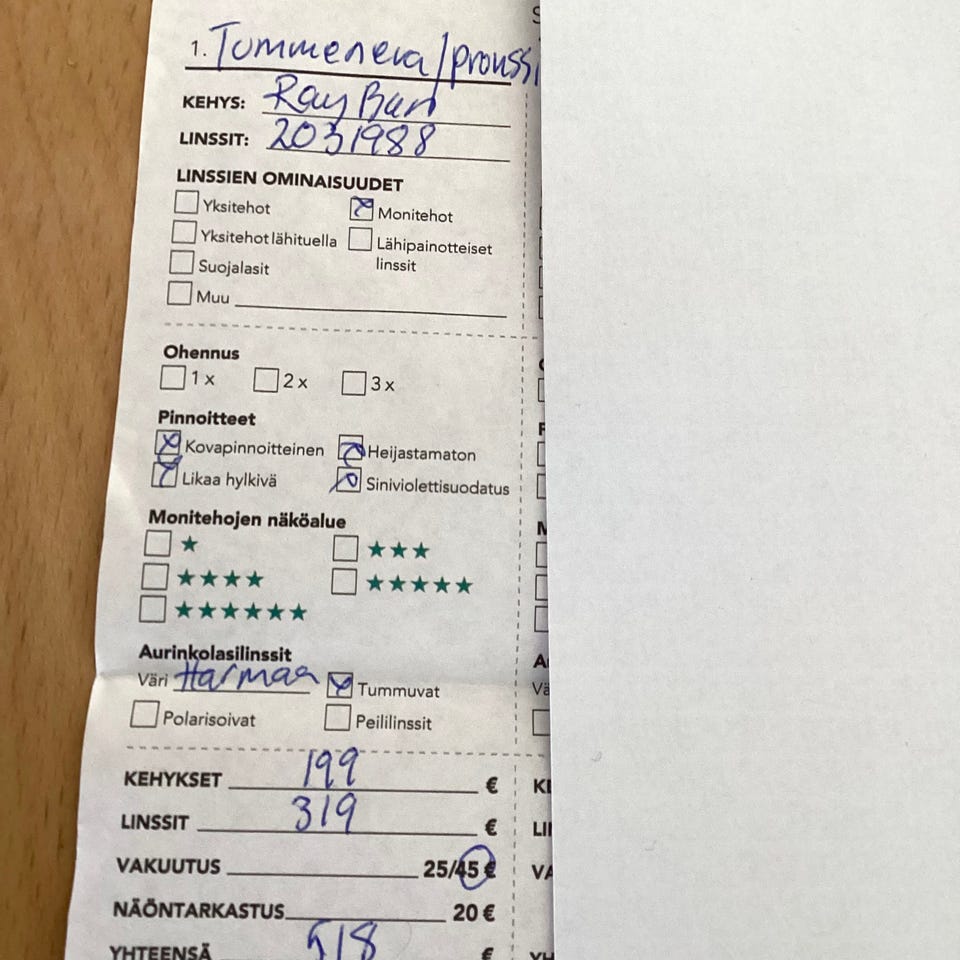 1. Tummeneva/prouss
KEHYS: Ray Ban
LINSSIT: 2031988
LINSSIEN OMINAISUUDET
Yksitehot Monitehot
Yksitehot lähituella Lähipainotteiset linssit
Suojalasit
Muu
Ohennus
1 x 2 x 3 x
Pinnoitteet
Kovapinnoitteinen Heijastamaton
Likaa hylkivä Siniviolettisuodatus
Monitehojen näköalue
★ ★★★
★★★★ ★★★★★
★★★★★★
Aurinkolasilinssit
Väri Harmaa Tummuvat
Polarisoivat Peililinssit
KEHYKSET 199 €
LINSSIT 319 €
VAKUUTUS 25/45 €
NÄÖNTARKASTUS 20 €
YHTEENSÄ 518 €